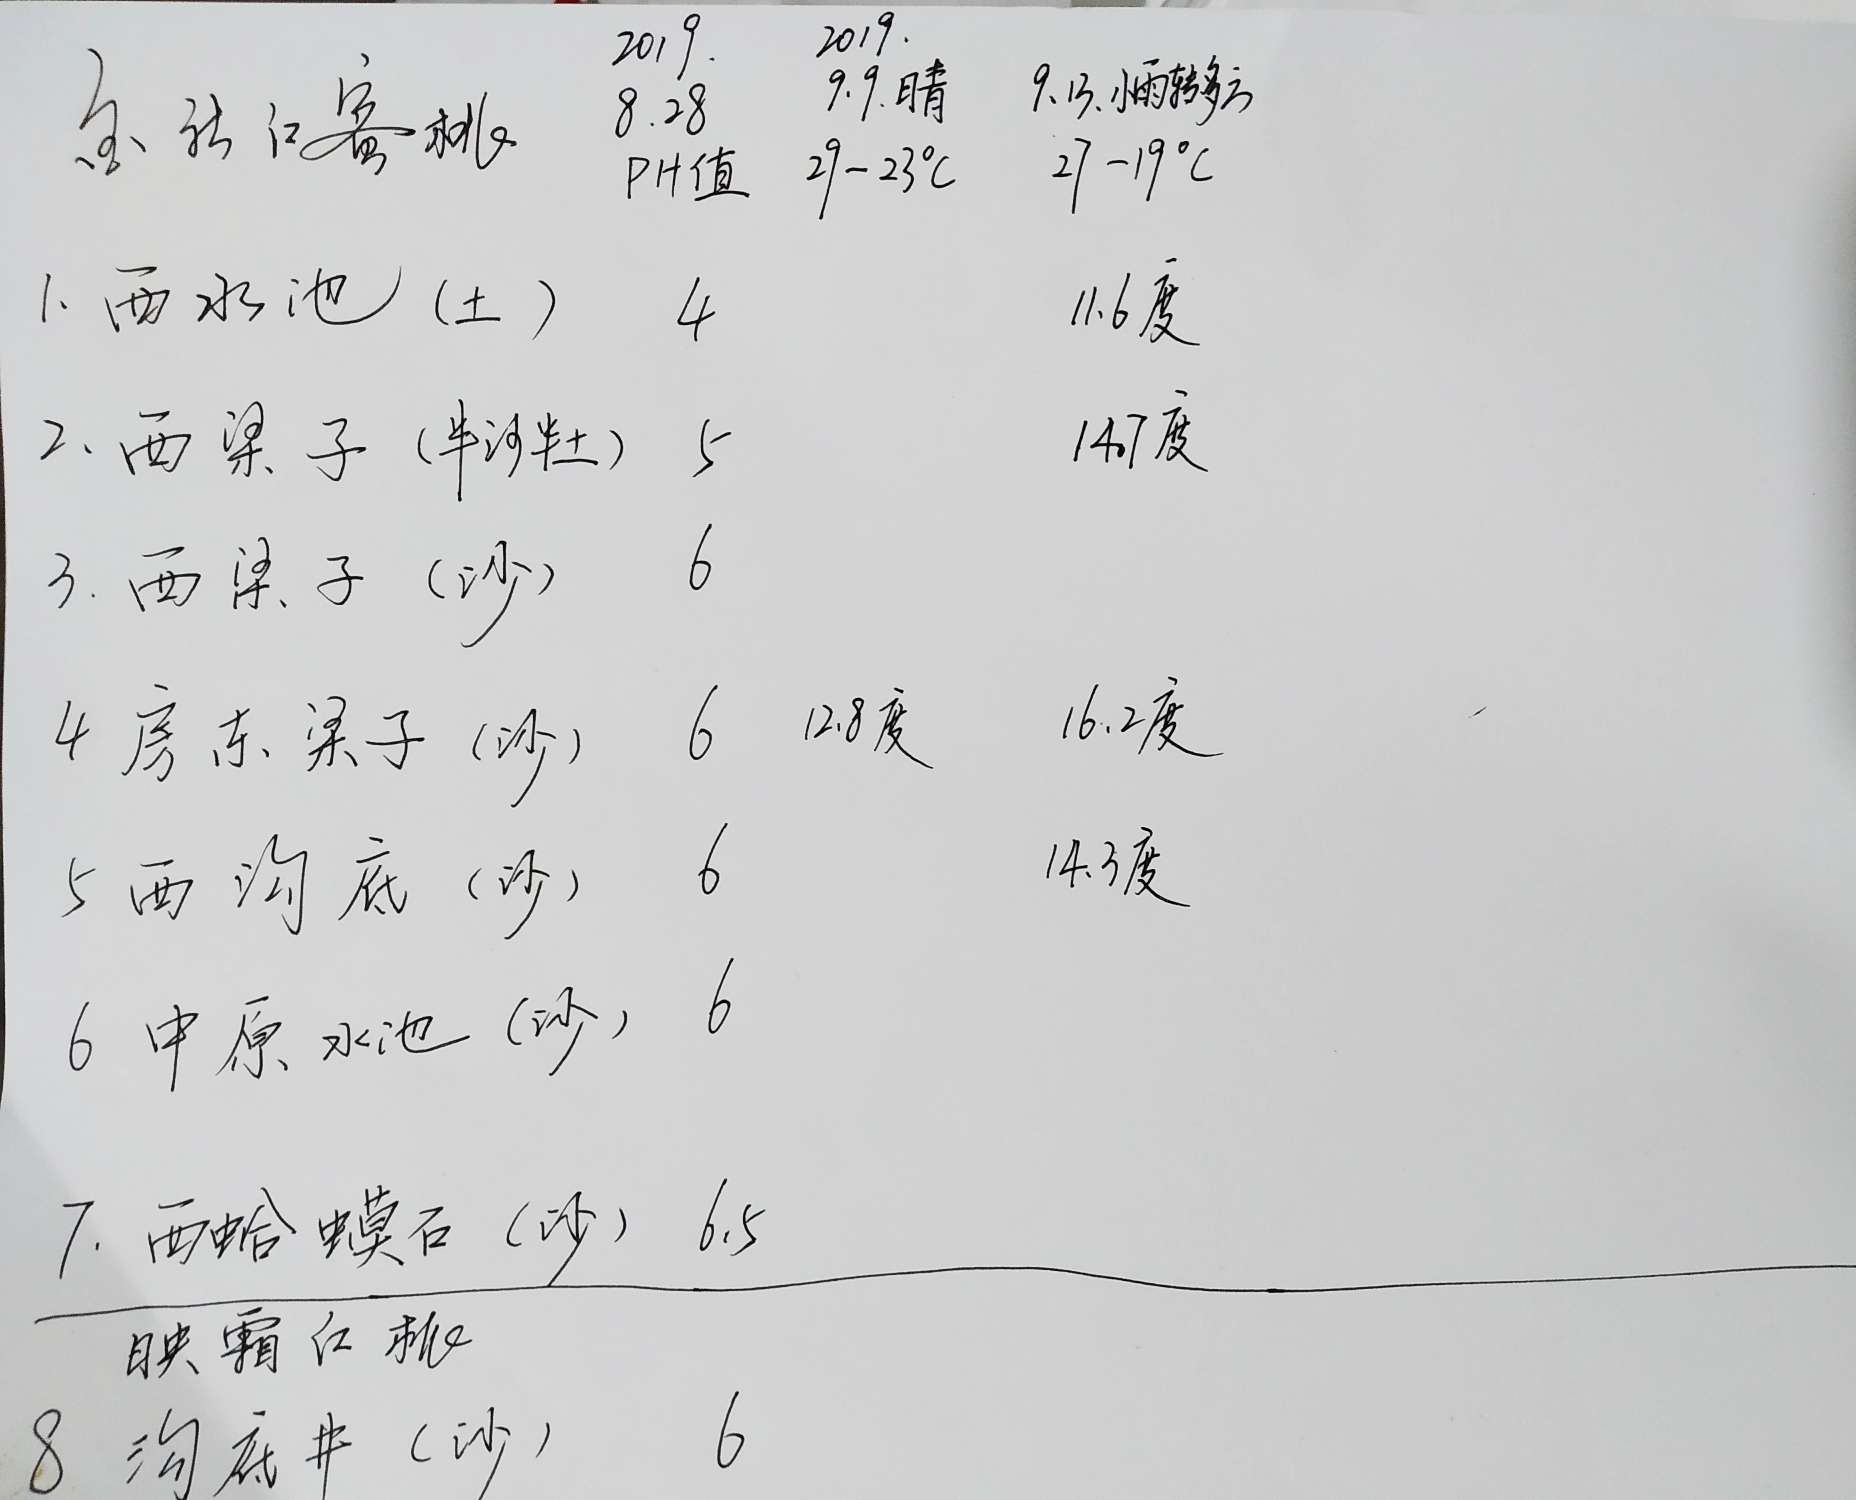 2019. 2019.
金秋红蜜桃 8.28 9.9.晴 9.13.小雨转多云
PH值 29-23℃ 27-19℃
1.西水池(土) 4 11.6度
2、西梁子(半沙半土) 5 14.7度
3.西梁子(沙) 6
4房东梁子(沙) 6 12.8度 16.2度
5西沟底(沙) 6 14.3度
6中原水池(沙) 6
7.西蛤蟆石(沙) 6.5
映霜红桃
8沟底井(沙) 6